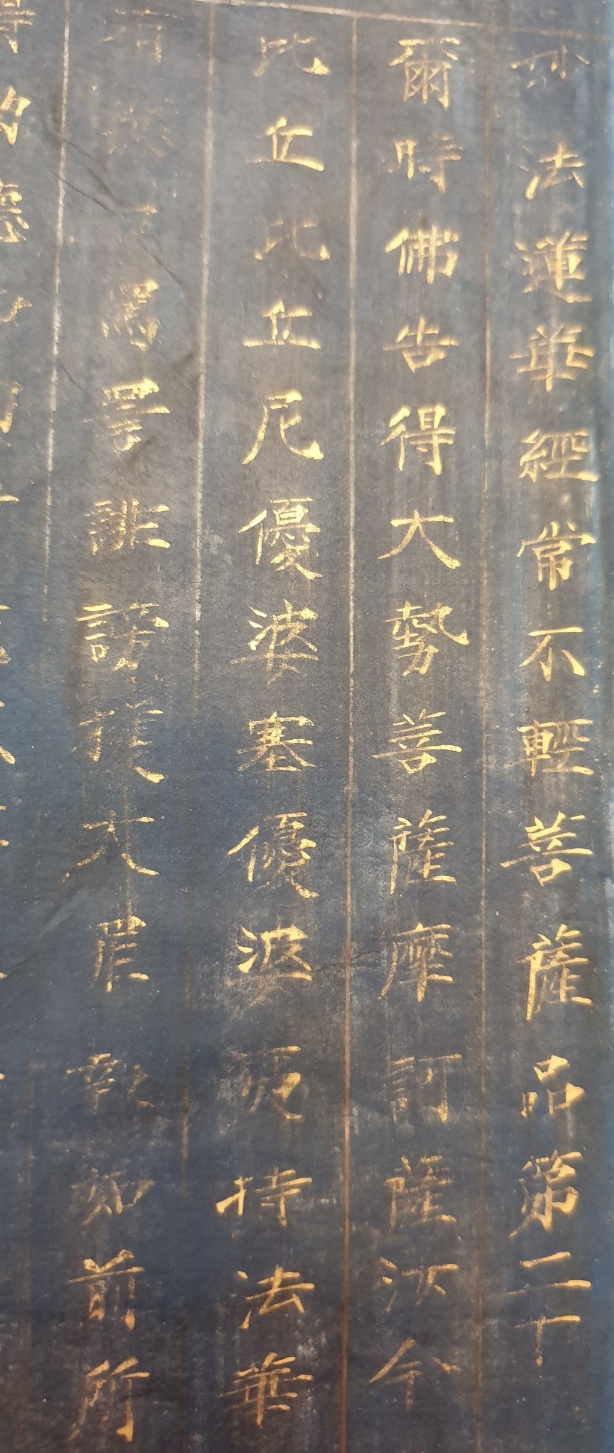 妙法蓮華經常不輕菩薩品第二十
爾時佛告得大勢菩薩摩訶薩汝今
比丘比丘尼優婆塞優婆夷持法華
有惡口罵詈誹謗獲大罪報如前所
得功德